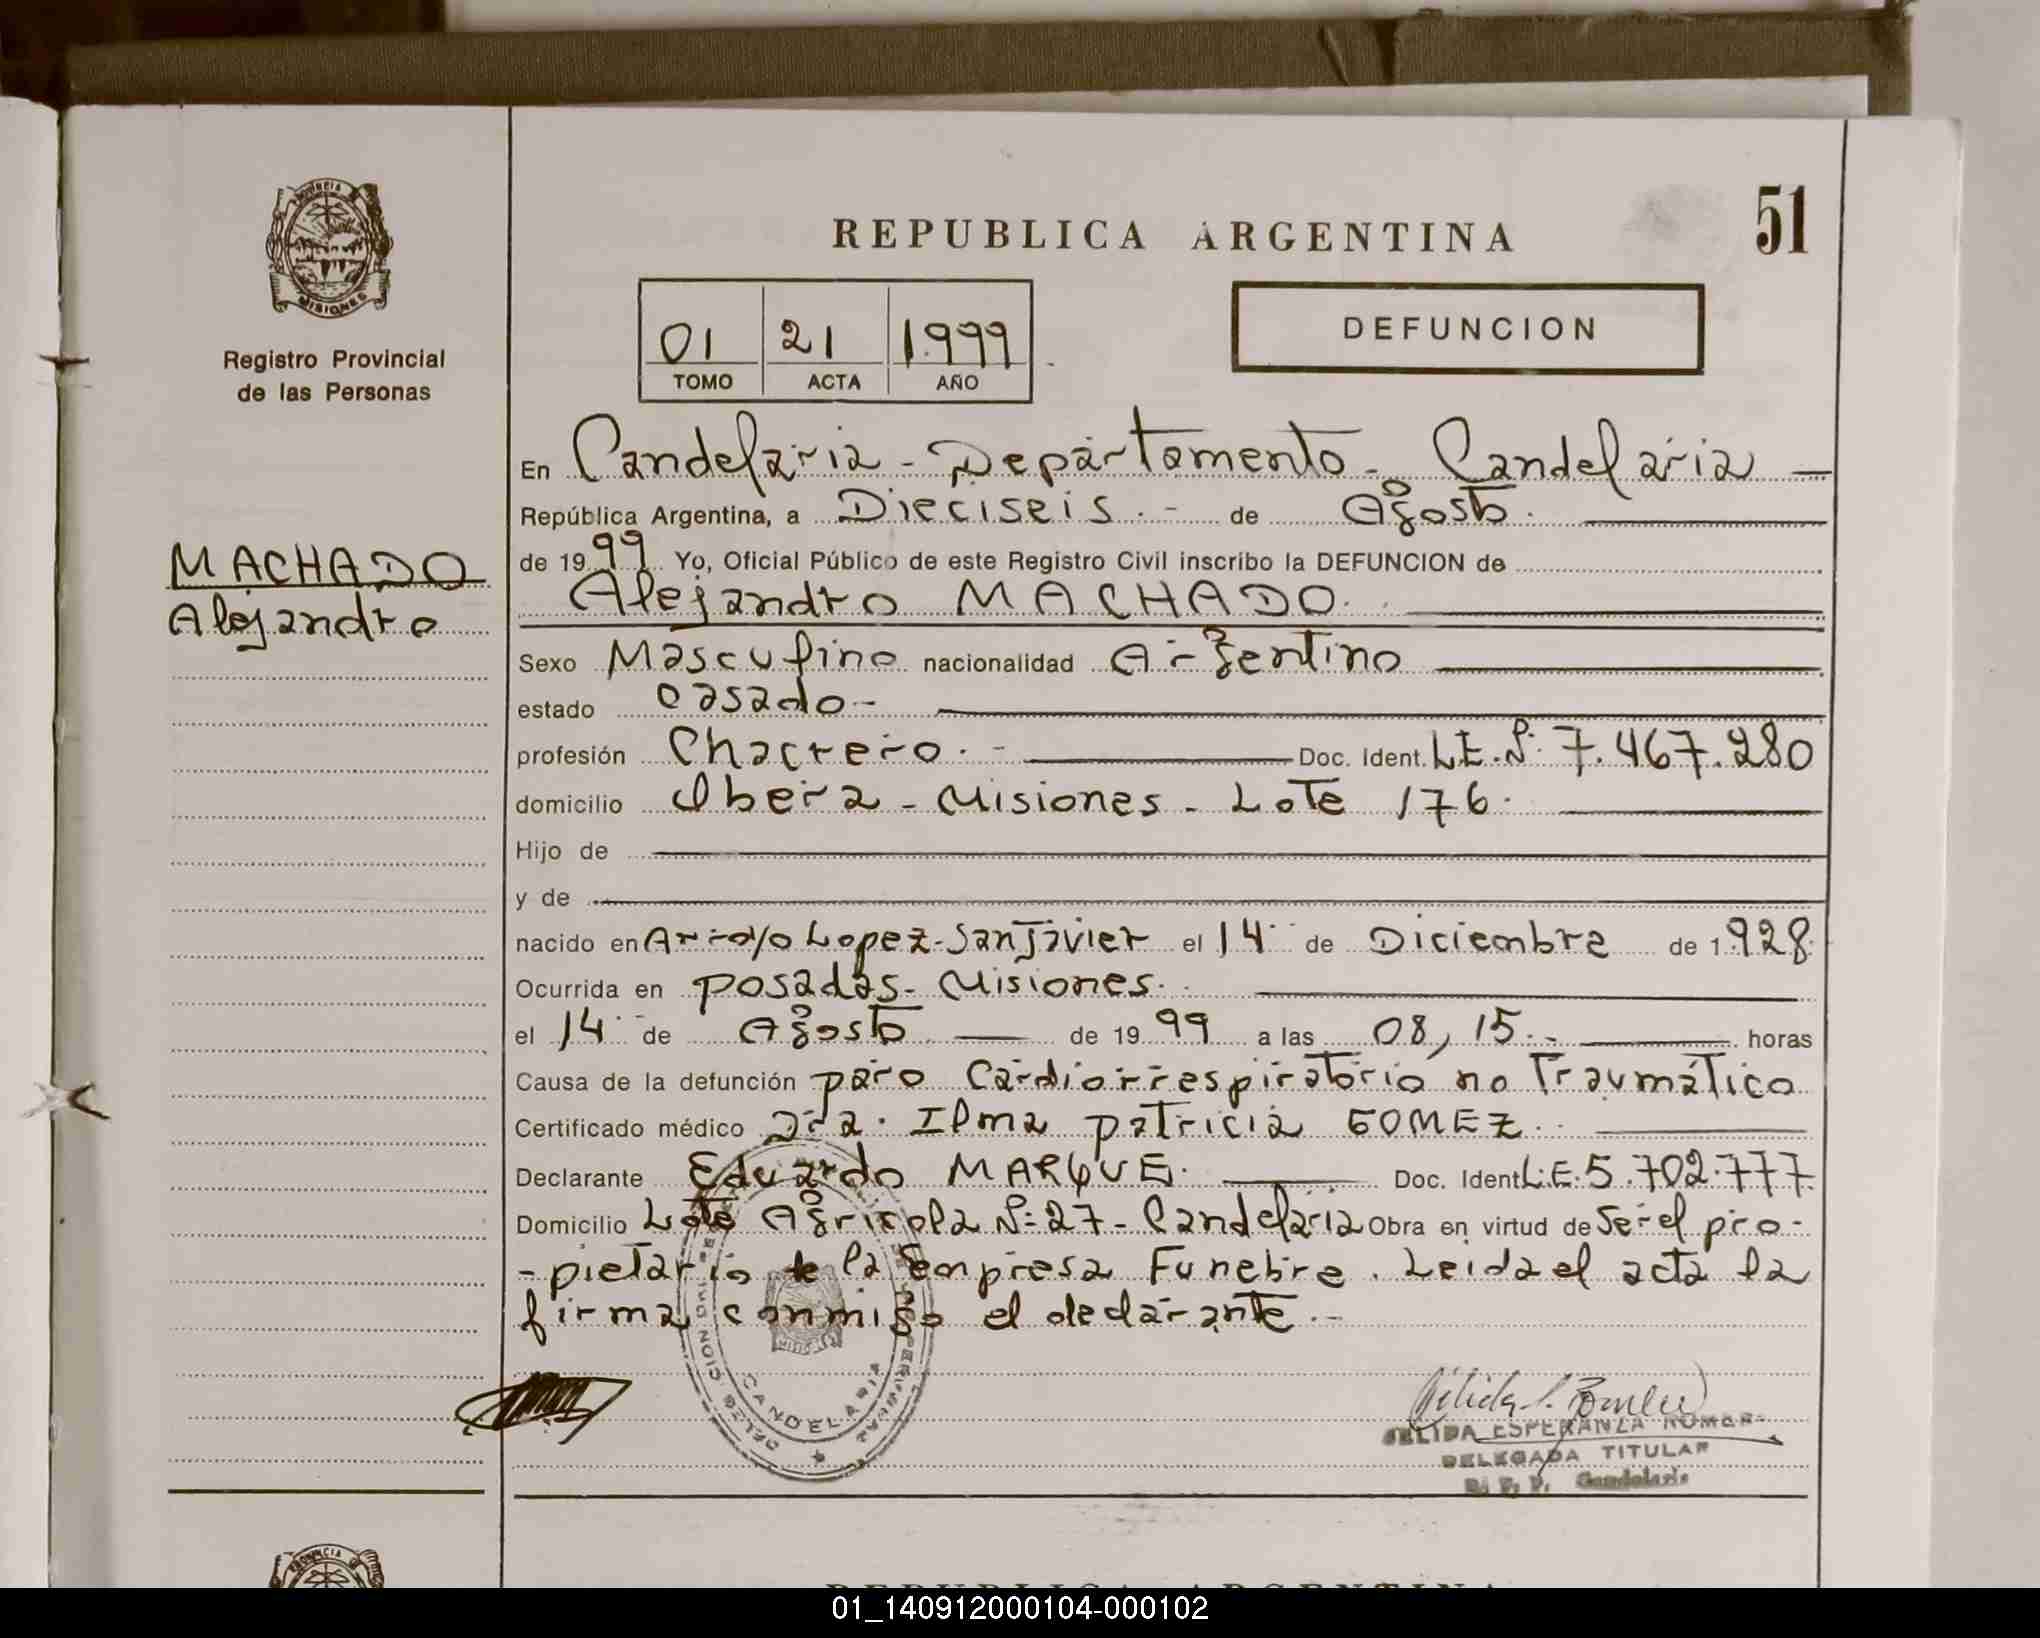 PROVINCIA
MISIONES
Registro Provincial
de las Personas
MACHADO
Alejandro
51
REPUBLICA ARGENTINA
01 21 1.999
TOMO ACTA AÑO
DEFUNCION
En Candelaria - Departamento - Candelaria -
República Argentina, a Dieciseis. - de Agosto.
de 1999 Yo, Oficial Público de este Registro Civil inscribo la DEFUNCION de
Alejandro MACHADO.
Sexo Masculino nacionalidad Argentino
estado casado -
profesión Chacrero. - Doc. Ident. L.E. Nº: 7.467.280
domicilio Oberá - Misiones - Lote 176.
Hijo de
y de
nacido en Arroyo Lopez - San Javier el 14 de Diciembre de 1.928
Ocurrida en posadas - Misiones.
el 14 de Agosto de 1999 a las 08,15.- horas
Causa de la defunción paro Cardiorrespiratorio no Traumático
Certificado médico Dra. Ilma patricia GOMEZ.
Declarante Eduardo MARQUE. Doc. Ident L.E. 5.702.777
Domicilio Lote Agricola Nº: 27 - Candelaria Obra en virtud de Ser el pro-
- pietario de la Empresa Funebre. Leida el acta la
firma conmigo el declarante.-
CANDELARIA
ESPERANZA
DELEGADA TITULAR
Candelaria
PROVINCIA
REPUBLICA ARGENTINA
01_140912000104-000102